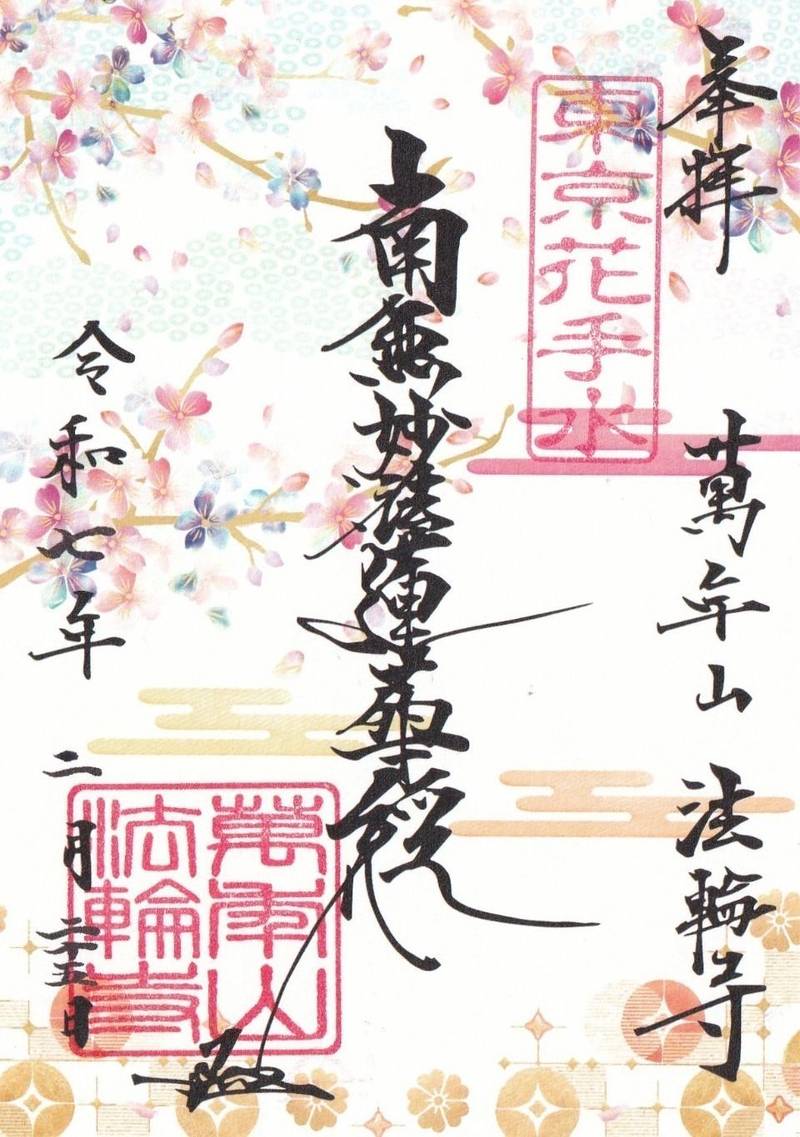 奉拝
萬年山 法輪寺
東京花手水
南無妙法蓮華経
令和七年 二月二十五日
萬年山
法輪寺